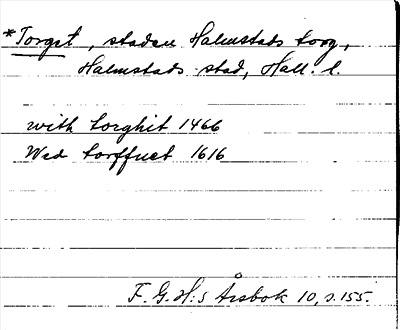 *Torget, staden Halmstads torg,
Halmstads stad, Hall. l.
with torghit 1466
Wed torffuet 1616
F. G. H:s Årsbok 10, s. 155.